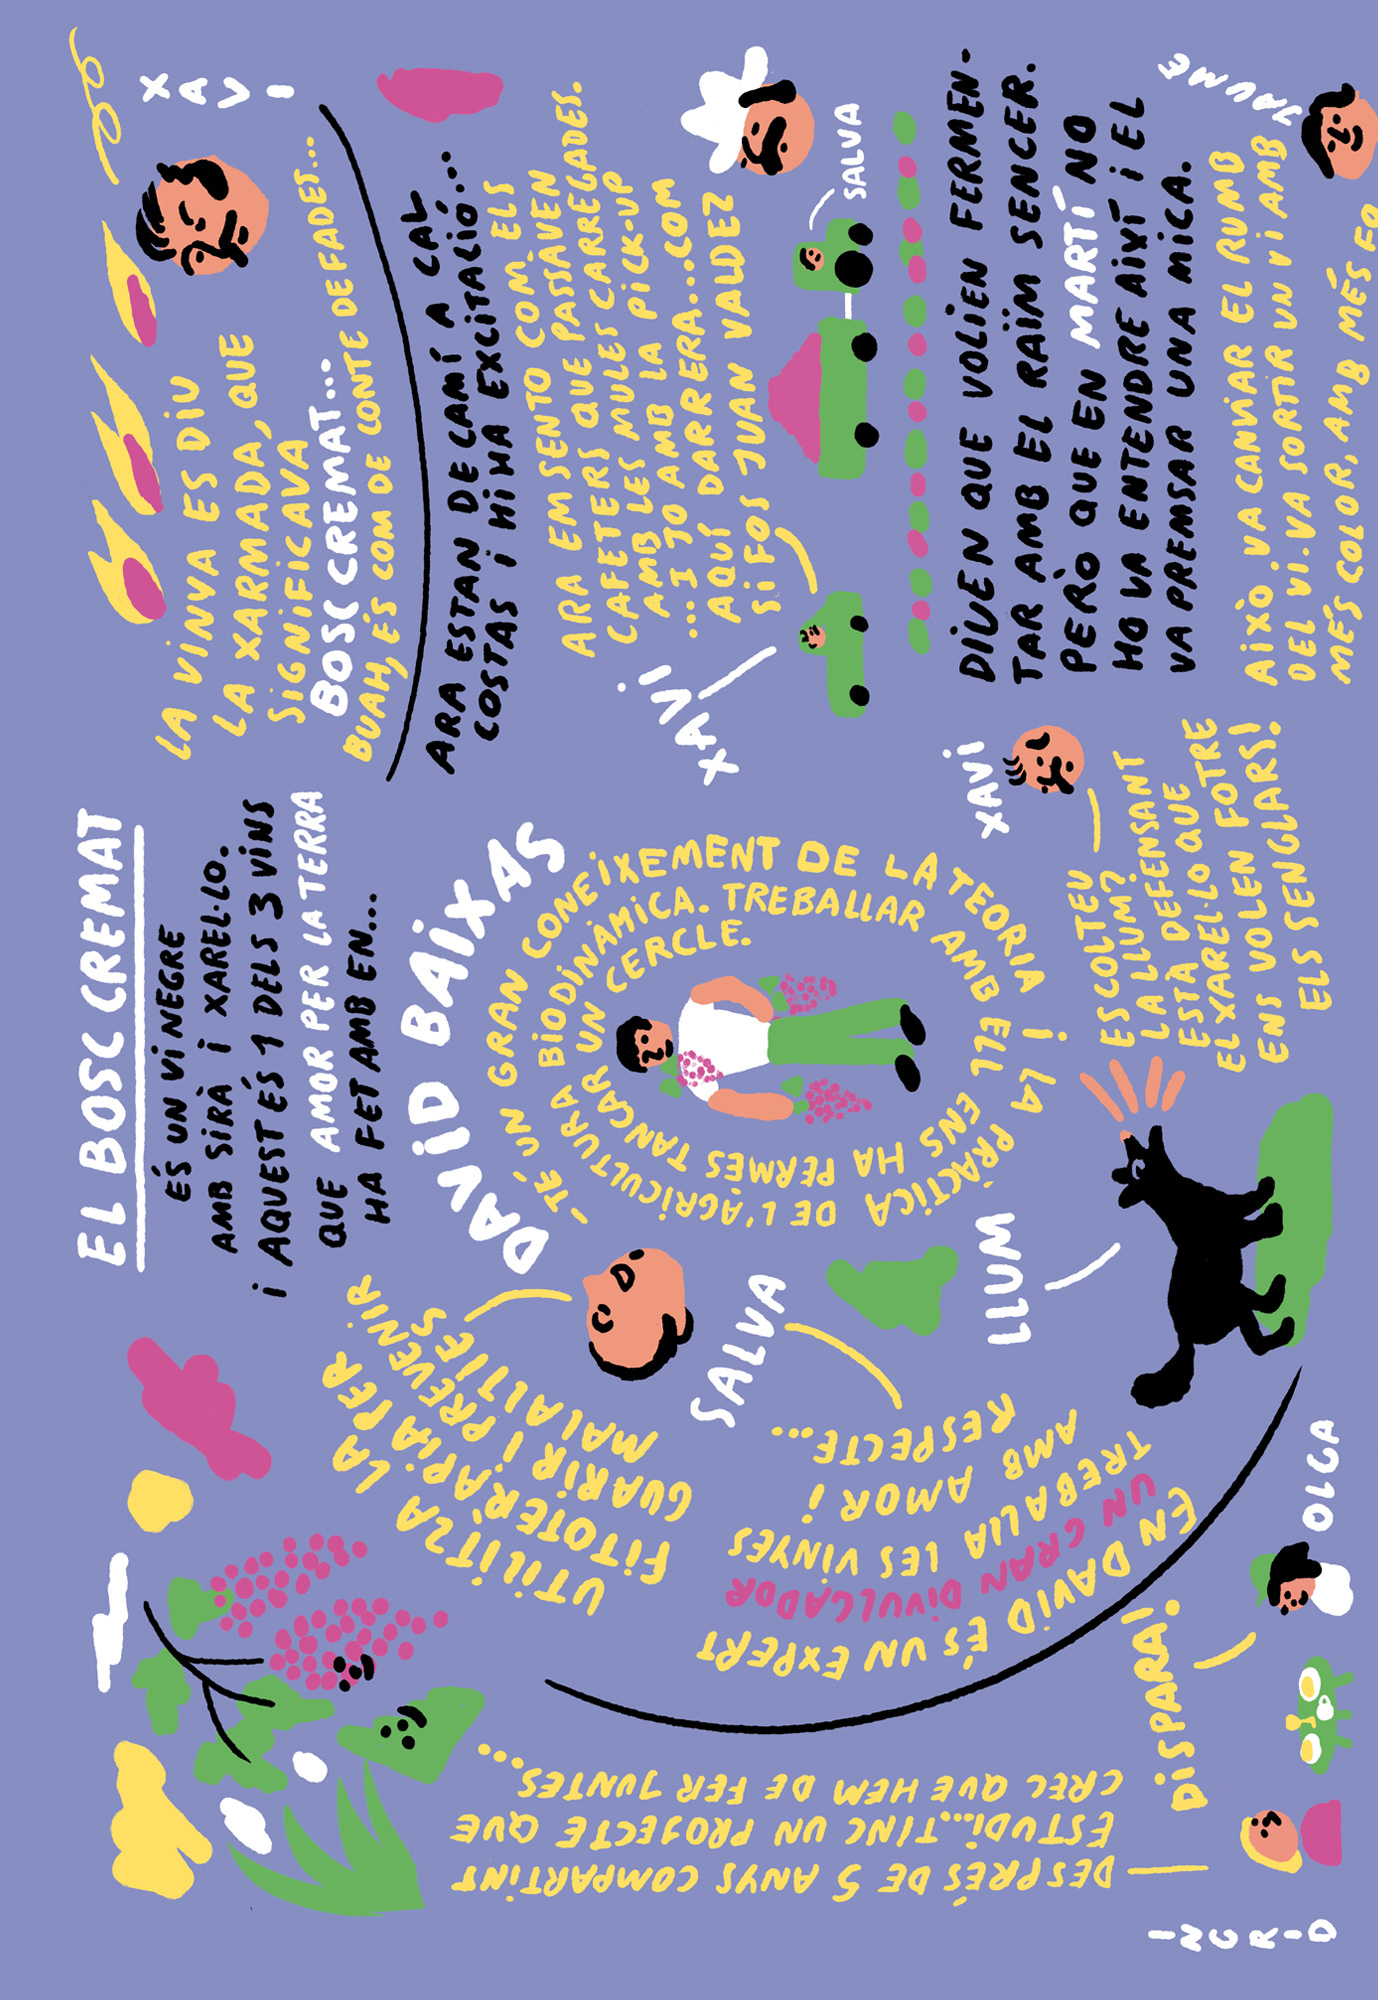 EL BOSC CREMAT
ÉS UN VI NEGRE
AMB SIRÀ I XAREL·LO.
I AQUEST ÉS 1 DELS 3 VINS
QUE AMOR PER LA TERRA
HA FET AMB EN...
DAVID BAIXAS
-TÉ UN GRAN CONEIXEMENT DE LA TEORIA I LA PRÀCTICA DE L'AGRICULTURA BIODINÀMICA. TREBALLAR AMB ELL ENS HA PERMÈS TANCAR UN CERCLE.
UTILITZA LA
FITOTERÀPIA PER
GUARIR I PREVENIR
MALALTIES
SALVA
EN DAVID ÉS UN EXPERT
UN GRAN DIVULGADOR
TREBALLA LES VINYES
AMB AMOR I
RESPECTE...
LLUM
XAVI
ESCOLTEU
LA LLUM?
LA DEFENSANT
ESTÀ DEFE
EL XAREL·LO QUE
ENS VOLEN FOTRE
ELS SENGLARS!
XAVI
LA VINYA ES DIU
LA XARMADA, QUE
SIGNIFICAVA
BOSC CREMAT...
BUAH, ÉS COM DE CONTE DE FADES...
ARA ESTAN DE CAMÍ A CAL
COSTAS I HI HA EXCITACIÓ...
ARA EM SENTO COM ELS
CAFETERS QUE PASSAVEN
AMB LES MULES CARREGADES.
...I JO AMB LA PICK-UP
AQUÍ DARRERA...COM
SI FOS JUAN VALDEZ
XAVI
SALVA
DIUEN QUE VOLIEN FERMEN-
TAR AMB EL RAÏM SENCER.
PERÒ QUE EN MARTÍ NO
HO VA ENTENDRE AIXÍ I EL
VA PREMSAR UNA MICA.
JAUME
AIXÒ VA CANVIAR EL RUMB
DEL VI. VA SORTIR UN VI AMB
MÉS COLOR, AMB MÉS FO
INGRID
DESPRÉS DE 5 ANYS COMPARTINT
ESTUDI...TINC UN PROJECTE QUE
CREC QUE HEM DE FER JUNTES...
DISPARA!
OLGA